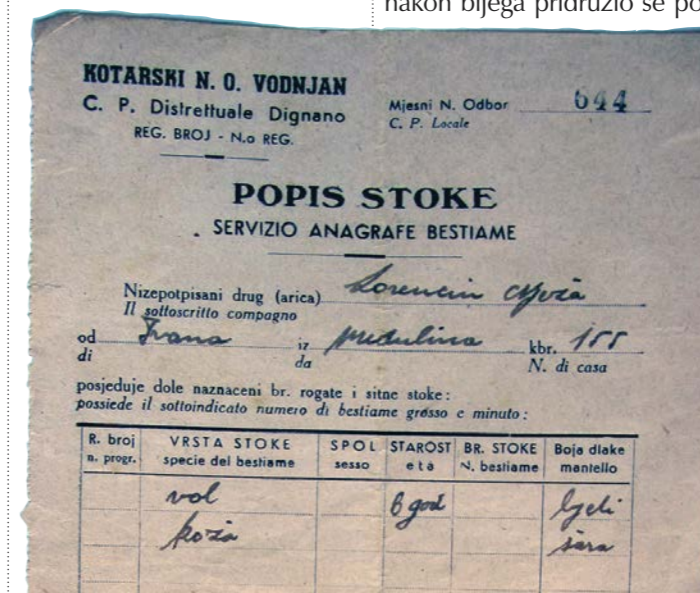 nakon bijega pridružio se po
KOTARSKI N. O. VODNJAN
C. P. Distrettuale Dignano
REG. BROJ - N.o REG.
Mjesni N. Odbor 644
C. P. Locale
POPIS STOKE
SERVIZIO ANAGRAFE BESTIAME
Nizepotpisani drug (arica) Lorencin
Il sottoscritto compagno
od Ivana iz kbr. 155
di da N. di casa
posjeduje dole naznaceni br. rogate i sitne stoke:
possiede il sottoindicato numero di bestiame grosso e minuto:
R. broj VRSTA STOKE SPOL STAROST BR. STOKE Boja dlake
n. progr. specie del bestiame sesso età N. bestiame mantello
vol 6 god bjeli
koza šara